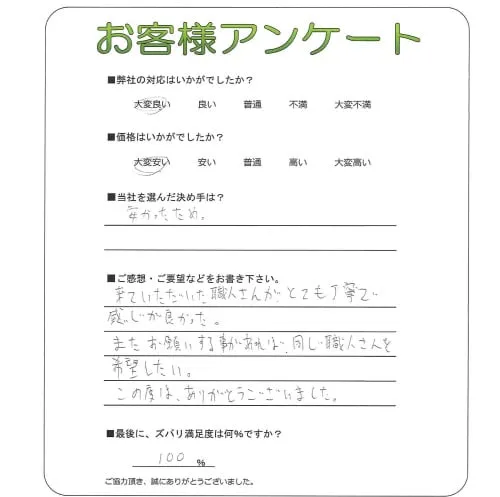 お客様アンケート
■弊社の対応はいかがでしたか？
大変良い 良い 普通 不満 大変不満
■価格はいかがでしたか？
大変安い 安い 普通 高い 大変高い
■当社を選んだ決め手は？
安かったため。
■ご感想・ご要望などをお書き下さい。
来ていただいた職人さんがとても丁寧で
感じが良かった。
またお願いする事があれば、同じ職人さんを
希望したい。
この度は、ありがとうございました。
■最後に、ズバリ満足度は何%ですか？
100 %
ご協力頂き、誠にありがとうございました。